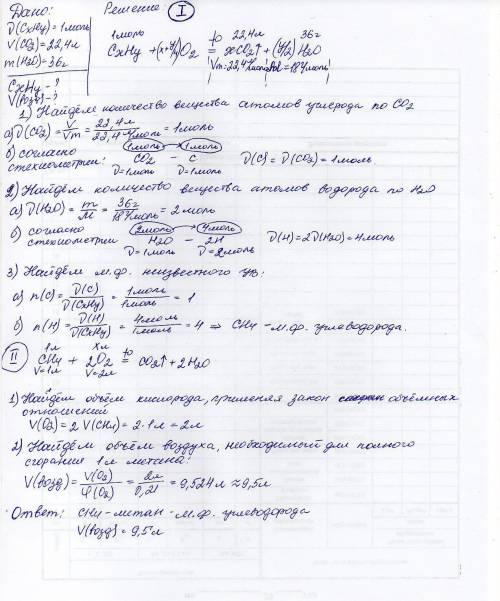 Дано:
ν(CxHy)=1моль
V(CO2)=22,4л
m(H2O)=36г
CxHy - ?
V(возд)-?
Решение: I
1моль to 22,4л 36г
CxHy +(x+y/4)O2 = xCO2↑ + (y/2) H2O
Vm=22,4л/моль M=18г/моль
1) Найдём количество вещества атомов углерода по CO2
а) ν(CO2)=V/Vm=22,4л/22,4л/моль=1моль
б) согласно 1моль → 1моль
стехиометрии: CO2 - C ν(C)=ν(CO2)=1моль
ν=1моль ν=1моль
2) Найдём количество вещества атомов водорода по H2O
а) ν(H2O)=m/M=36г/18г/моль=2моль
б) согласно 2моль → 4моль
стехиометрии H2O - 2H ν(H)=2ν(H2O)=4моль
ν=1моль ν=2моль
3) Найдём м.ф. неизвестного УВ:
а) n(C)=ν(C)/ν(CxHy)=1моль/1моль=1
б) n(H)=ν(H)/ν(CxHy)=4моль/1моль=4 ⇒ CH4 -м.ф. углеводорода.
II 1л Xл to
CH4 + 2O2 = CO2↑+2H2O
V=1л V=2л
1) Найдём объём кислорода, применяя закон объёмных
отношений
V(O2)=2V(CH4)=2·1л=2л
2) Найдём объём воздуха, необходимый для полного
сгорания 1л метана:
V(возд)=V(O2)/φ(O2)=2л/0,21=9,524л≈9,5л
Ответ: CH4-метан-м.ф. углеводорода
V(возд)=9,5л